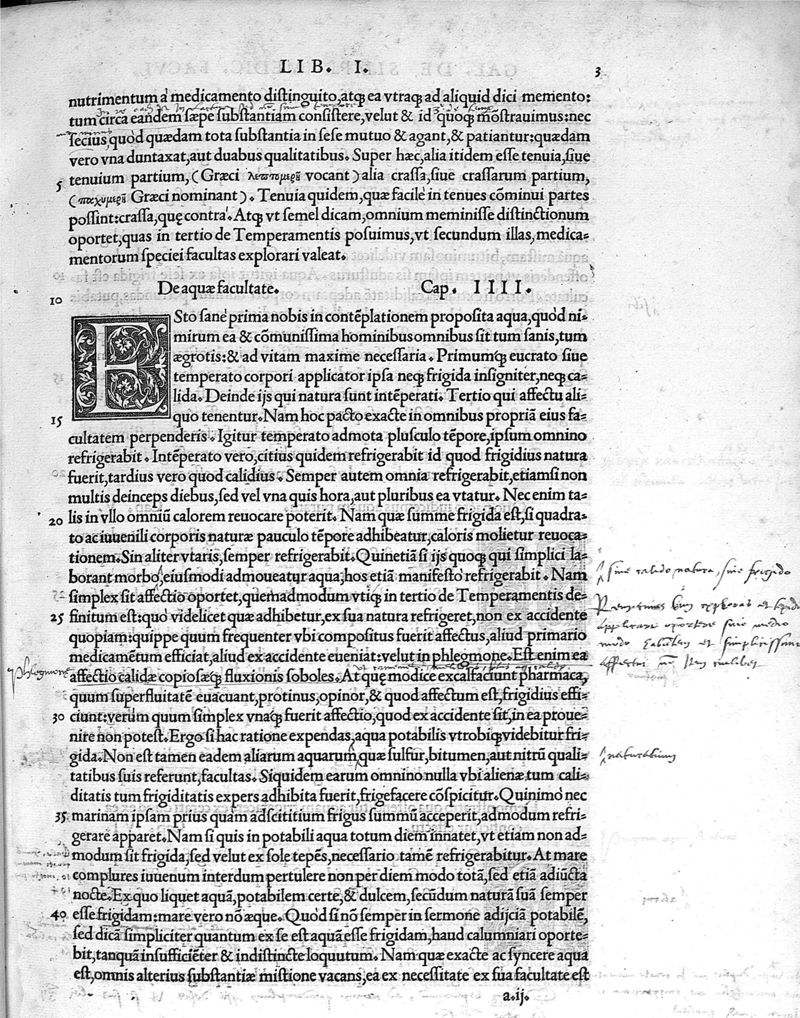 LIB. I. 3
nutrimentum à medicamento distinguito, atq; ea vtraq; ad aliquid dici memento:
tum circa eandem sæpe substantiam consistere, velut & id quoq; mõstrauimus: nec
secius, quod quædam tota substantia in sese mutuo & agant, & patiantur: quædam
vero vna duntaxat, aut duabus qualitatibus. Super hæc, alia itidem esse tenuia, siue
5 tenuium partium, (Græci λεπτομερῆ vocant) alia crassa, siue crassarum partium,
(παχυμερῆ Græci nominant). Tenuia quidem, quæ facile in tenues cõminui partes
possint: crassa, quę contrà. Atq; vt semel dicam, omnium meminisse distinctionum
oportet, quas in tertio de Temperamentis posuimus, vt secundum illas, medica-
mentorum speciei facultas explorari valeat.
10 De aquæ facultate. Cap. IIII.
ESto sanè prima nobis in contẽplationem proposita aqua, quod ni-
mirum ea & cõmunissima hominibus omnibus sit tum sanis, tum
ægrotis: & ad vitam maxime necessaria. Primumq; eucrato siue
temperato corpori applicator ipsa neq; frigida insigniter, neq; ca-
lida. Deinde ijs qui natura sunt intẽperati. Tertio qui affectu ali-
15 quo tenentur. Nam hoc pacto exacte in omnibus propriã eius fa-
cultatem perpenderis. Igitur temperato admota plusculo tẽpore, ipsum omnino
refrigerabit. Intẽperato vero, citius quidem refrigerabit id quod frigidius natura
fuerit, tardius vero quod calidius. Semper autem omnia refrigerabit, etiamsi non
multis deinceps diebus, sed vel vna quis hora, aut pluribus ea vtatur. Nec enim ta-
20 lis in vllo omniũ calorem reuocare poterit. Nam quæ summe frigida est, si quadra-
to ac iuuenili corporis naturæ pauculo tẽpore adhibeatur, caloris molietur reuoca-
tionem. Sin aliter vtaris, semper refrigerabit. Quinetiã si ijs quoq; qui simplici la-
borant morbo, eiusmodi admoueatur aqua: hos etiã manifesto refrigerabit. Nam
simplex sit affectio oportet, quemadmodum vtiq; in tertio de Temperamentis de-
25 finitum est: quo videlicet quæ adhibetur, ex sua natura refrigeret, non ex accidente
quopiam: quippe quum frequenter vbi compositus fuerit affectus, aliud primario
medicamẽtum efficiat, aliud ex accidente eueniat: velut in phlegmone. Est enim ea
affectio calidæ copiosæq; fluxionis soboles. At quę modice excalfaciunt pharmaca,
quum superfluitatẽ euacuant, protinus, opinor, & quod affectum est, frigidius effi-
30 ciunt: verùm quum simplex vnaq; fuerit affectio, quod ex accidente sit, in ea proue-
nire non potest. Ergo si hac ratione expendas, aqua potabilis vtrobiq; videbitur fri-
gida. Non est tamen eadem aliarum aquarum, quæ sulfur, bitumen, aut nitrũ quali-
tatibus suis referunt, facultas. Siquidem earum omnino nulla vbi alienæ tum cali-
ditatis tum frigiditatis expers adhibita fuerit, frigefacere cõspicitur. Quinimo nec
35 marinam ipsam prius quam adscititium frigus summũ acceperit, admodum refri-
gerare apparet. Nam si quis in potabili aqua totum diem innatet, vt etiam non ad-
modum sit frigida, sed velut ex sole tepẽs, necessario tamẽ refrigerabitur. At mare
complures iuuenum interdum pertulere non per diem modo totã, sed etiã adiũcta
nocte. Ex quo liquet aquã, potabilem certe, & dulcem, secũdum naturã suã semper
40 esse frigidam: mare vero nõ æque. Quòd si nõ semper in sermone adijciã potabilẽ,
sed dicã simpliciter quantum ex se est aquã esse frigidam, haud calumniari oporte-
bit, tanquã insufficiẽter & indistincte loquutum. Nam quæ exacte ac syncere aqua
est, omnis alterius substantiæ mistione vacans, ea ex necessitate ex sua facultate est
a.ij.
siue calido natura, siue frigido
phlegmone
naturalium